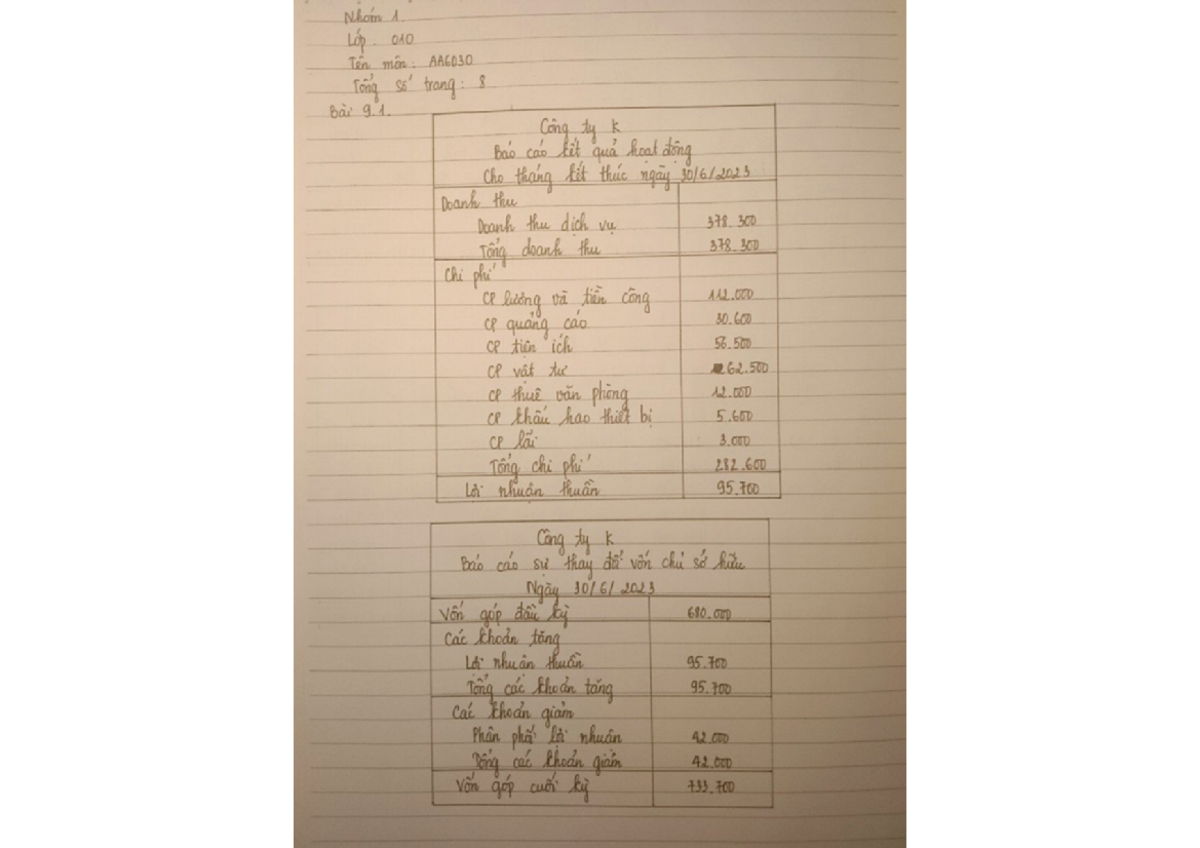 Nhóm 1.
Lớp : 010
Tên môn : AA6030
Tổng số trang : 8
Bài 9.1.
Công ty K
Báo cáo kết quả hoạt động
Cho tháng kết thúc ngày 30/6/2023
Doanh thu
Doanh thu dịch vụ 378.300
Tổng doanh thu 378.300
Chi phí
CP lương và tiền công 112.000
CP quảng cáo 30.600
CP tiện ích 56.500
CP vật tư 62.500
CP thuê văn phòng 12.000
CP khấu hao thiết bị 5.600
CP lãi 3.000
Tổng chi phí 282.600
Lợi nhuận thuần 95.700
Công ty K
Báo cáo sự thay đổi vốn chủ sở hữu
Ngày 30/6/2023
Vốn góp đầu kỳ 680.000
Các khoản tăng
Lợi nhuận thuần 95.700
Tổng các khoản tăng 95.700
Các khoản giảm
Phân phối lợi nhuận 42.000
Tổng các khoản giảm 42.000
Vốn góp cuối kỳ 733.700